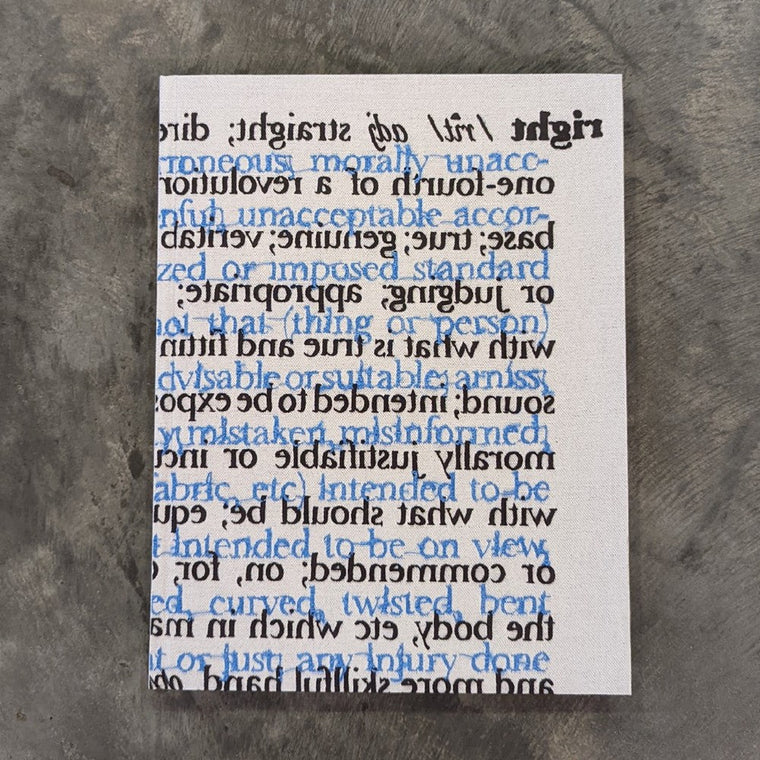 right /rīt/ adj straight; dire
rroneous; morally unacc-
one-fourth of a revolution
nful; unacceptable accor-
base; true; genuine; veritab
zed or imposed standard
or judging; appropriate;
not that (thing or person)
with what is true and fittin
dvisable or suitable; amiss;
sound; intended to be expos
y mistaken, misinformed;
morally justifiable or incu
fabric, etc) intended to be
with what should be; equ
t intended to be on view,
or commended; on, for,
ed, curved, twisted, bent
the body, etc which in ma
t or just; any injury done
and more skillful hand, obs